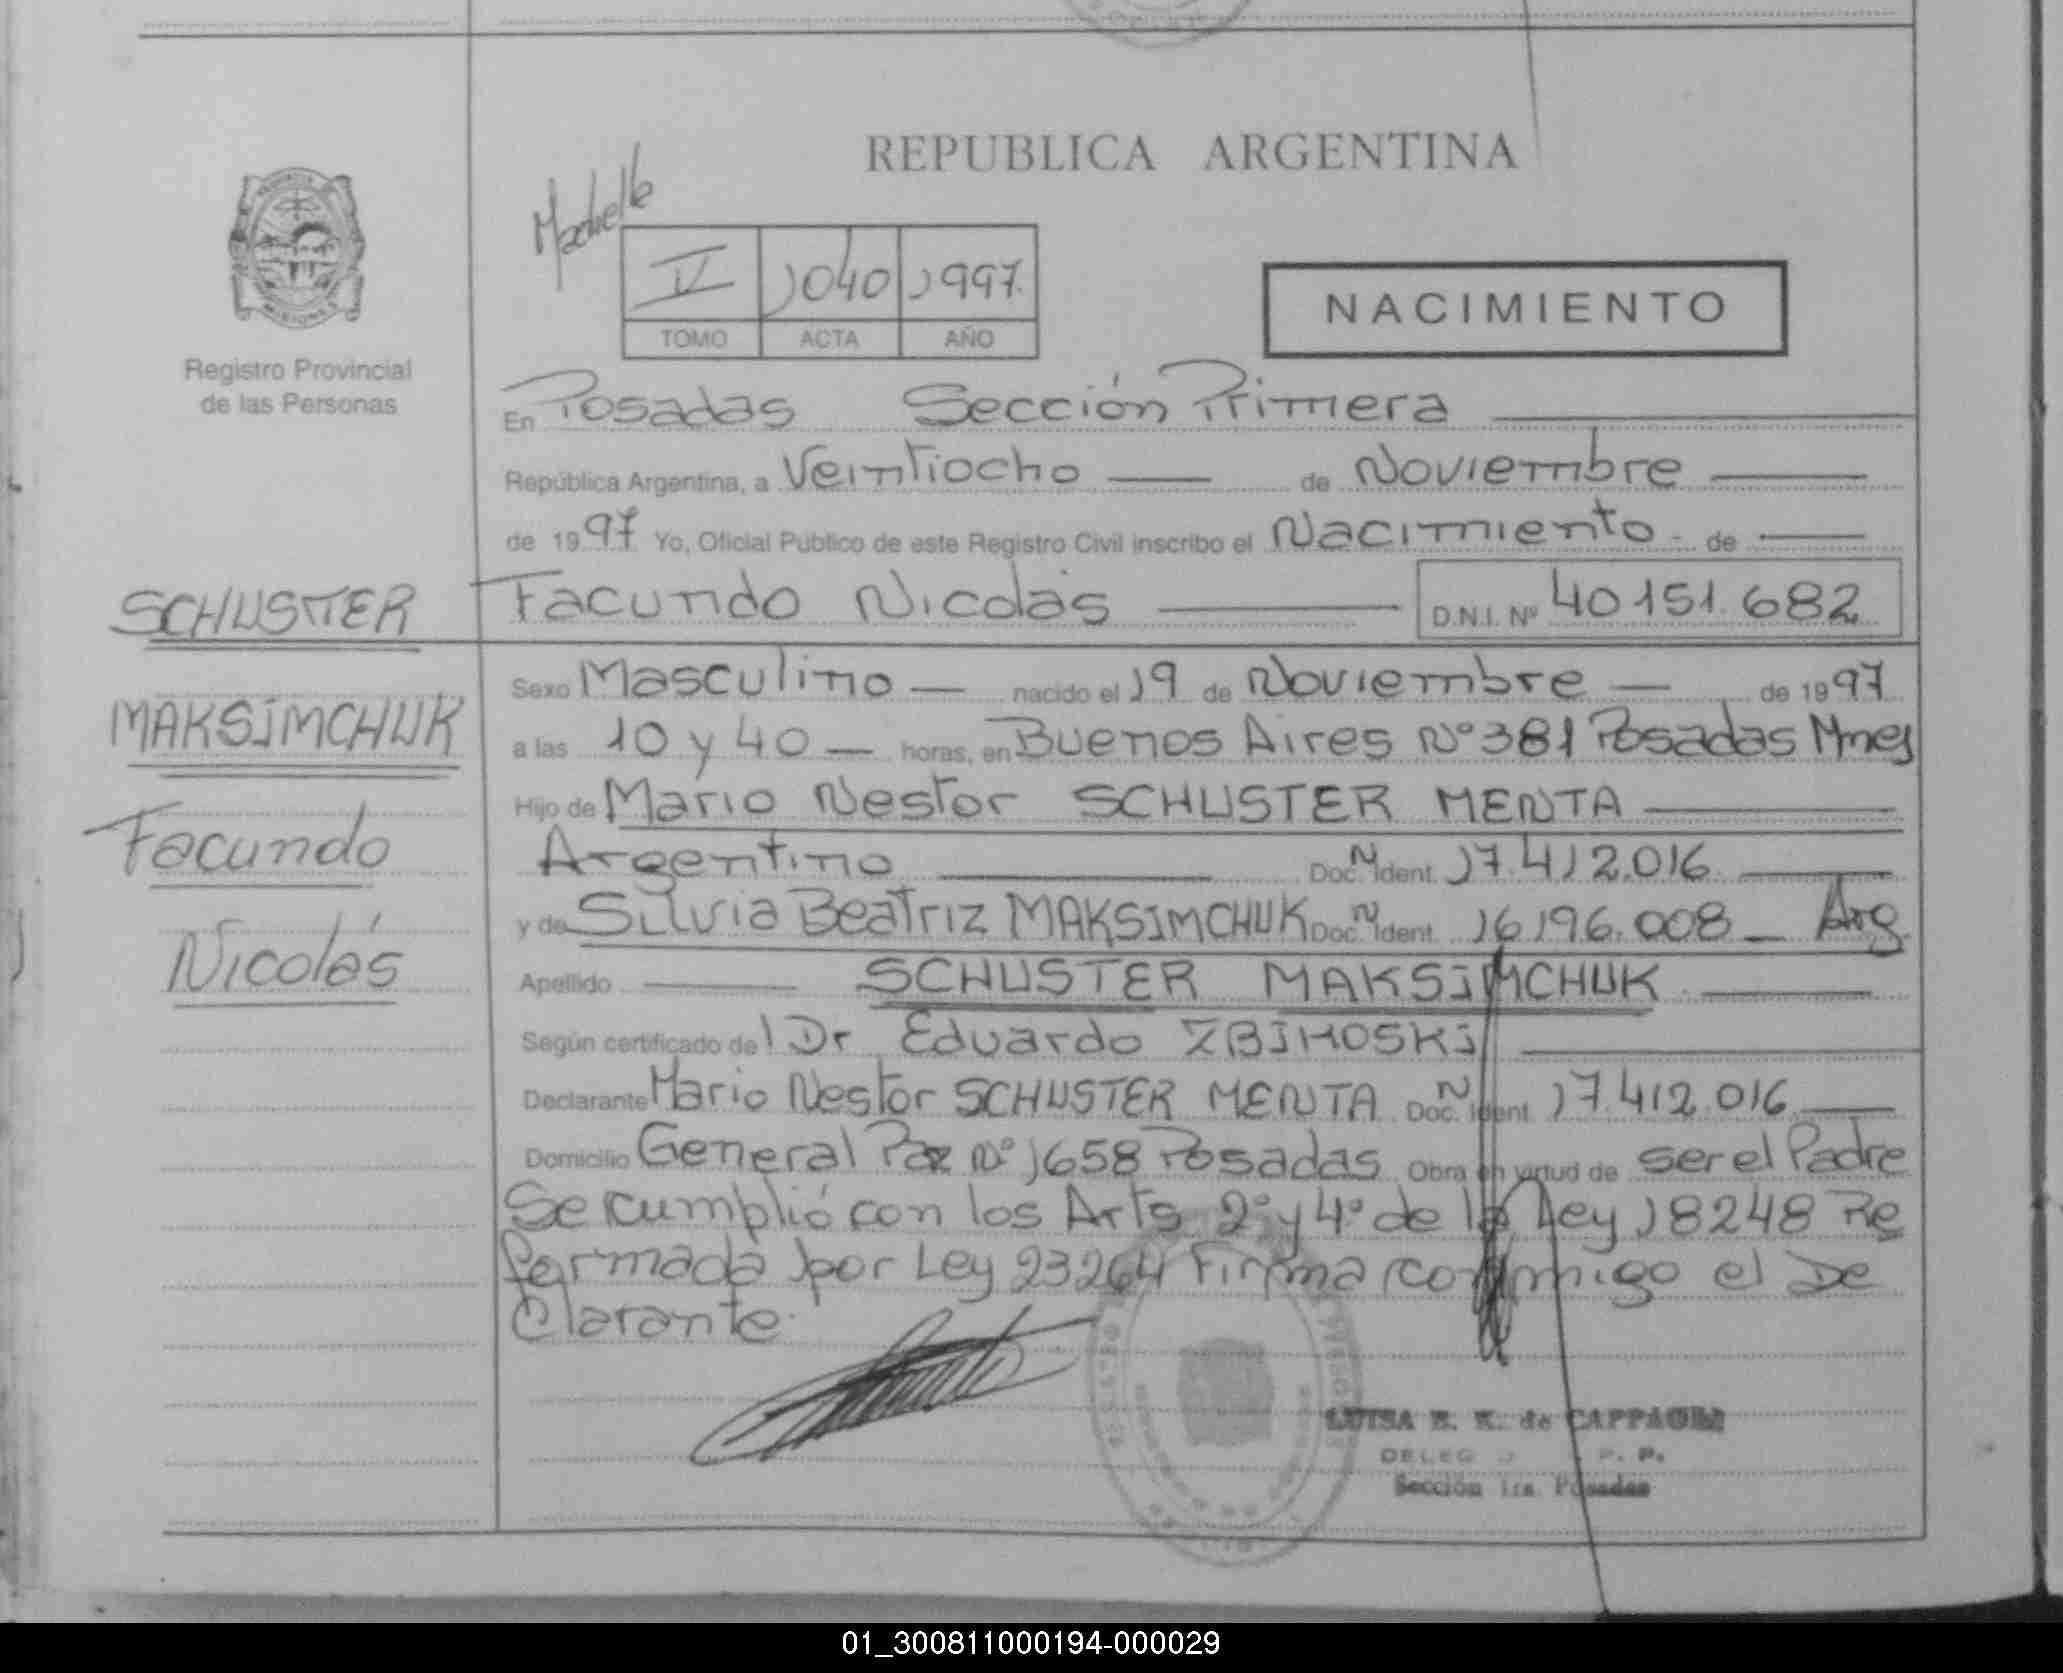 REPUBLICA ARGENTINA
IV 1040 1997
TOMO ACTA AÑO
NACIMIENTO
MISIONES
Registro Provincial
de las Personas
En Posadas Sección Primera
República Argentina, a Veintiocho de Noviembre
de 1997 Yo, Oficial Público de este Registro Civil inscribo el Nacimiento de
Facundo Nicolás D.N.I. Nº 40151.682
SCHUSTER
MAKSIMCHUK
Facundo
Nicolás
Sexo Masculino nacido el 19 de Noviembre de 1997
a las 10 y 40 horas, en Buenos Aires Nº 381 Posadas Mnes
Hijo de Mario Nestor SCHUSTER MENTA
Argentino Doc. N Ident. 17.412.016
y de Silvia Beatriz MAKSIMCHUK Doc. N Ident. 16196.008 Arg.
Apellido SCHUSTER MAKSIMCHUK
Según certificado del Dr Eduardo
Declarante Mario Nestor SCHUSTER MENTA Doc. N Ident. 17.412.016
Domicilio General Paz Nº 1658 Posadas Obra en virtud de ser el Padre
Se cumplió con los Arts 2º y 4º de la Ley 18248 Re
formada por Ley 23264 Firma conmigo el De
Clarante.
LUISA E. K. de
P. P.
Sección 1ra. Posadas
01_300811000194-000029